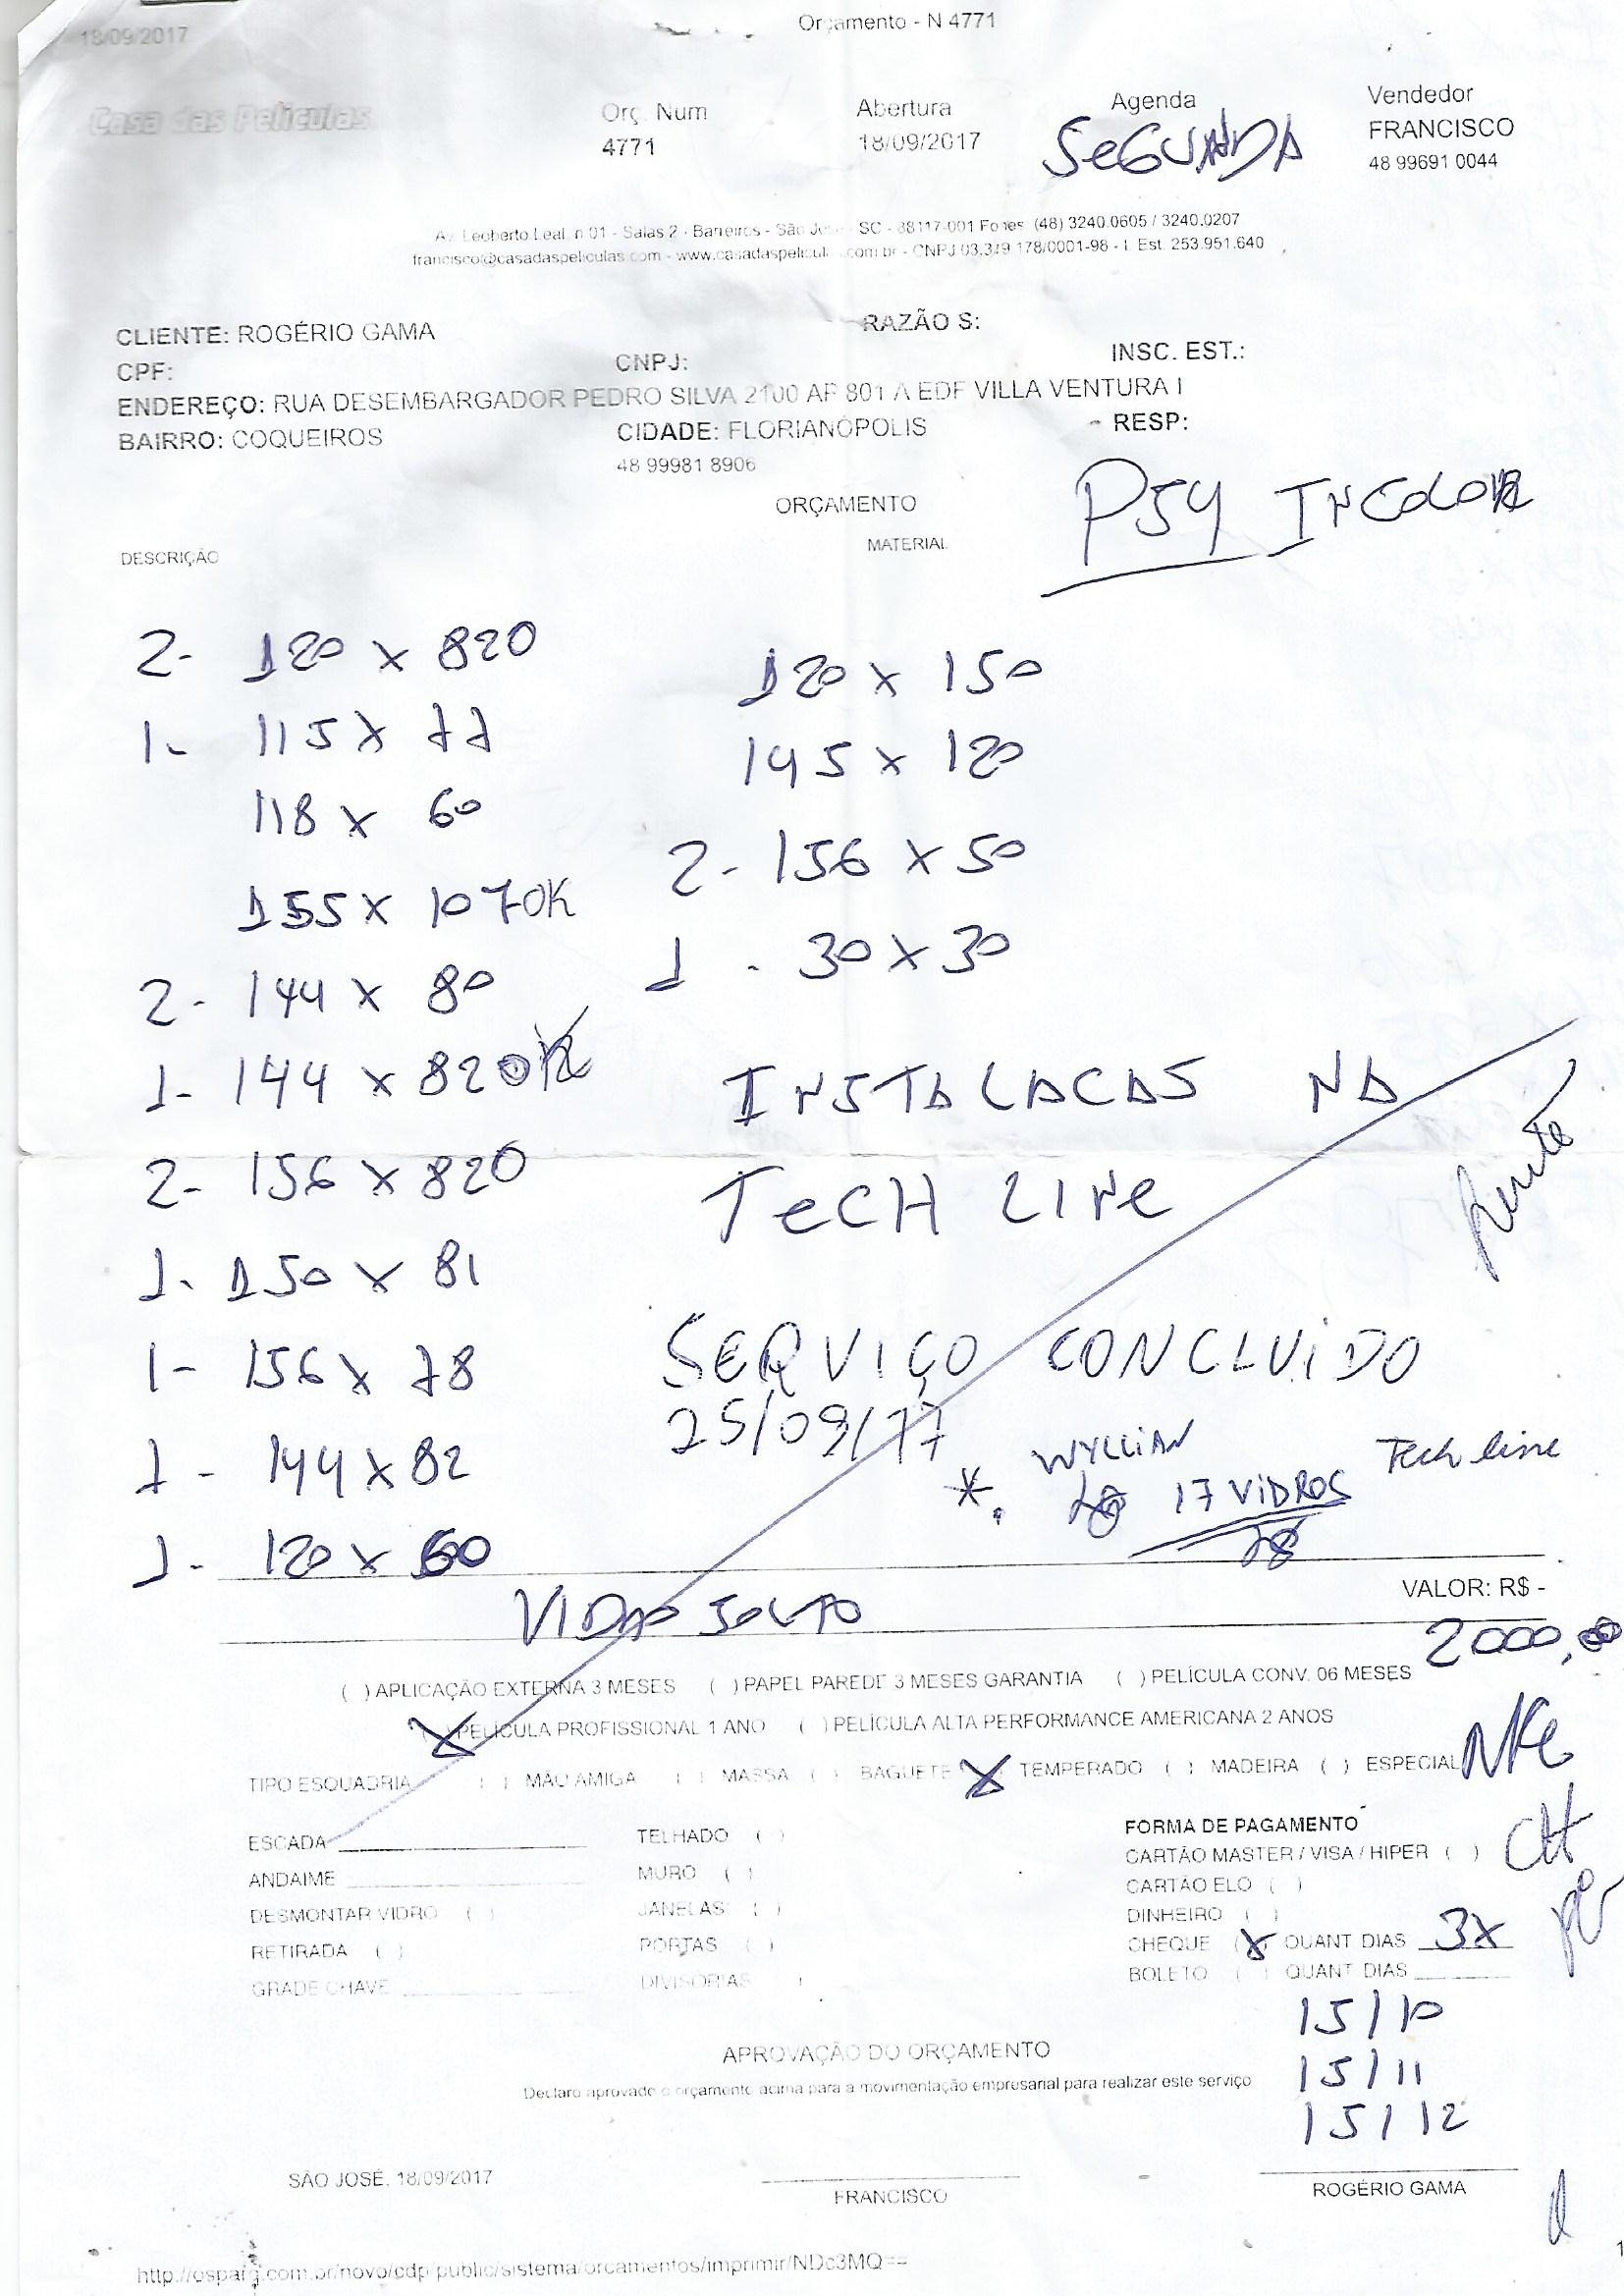 18/09/2017
Orçamento - N 4771
Casa das Películas
Orç. Num
4771
Abertura
18/09/2017
Agenda
SEGUNDA
Vendedor
FRANCISCO
48 99691 0044
Av. Leoberto Leal, n 01 - Salas 2 - Barreiros - São José - SC - 88117-001 Fones: (48) 3240.0605 / 3240.0207
francisco@casadaspeliculas.com - www.casadaspeliculas.com.br - CNPJ 03.319.178/0001-98 - I. Est. 253.951.640
CLIENTE: ROGÉRIO GAMA
RAZÃO S:
CPF:
CNPJ:
INSC. EST.:
ENDEREÇO: RUA DESEMBARGADOR PEDRO SILVA 2100 AP 801 A EDF VILLA VENTURA I
BAIRRO: COQUEIROS
CIDADE: FLORIANÓPOLIS
RESP:
48 99981 8906
ORÇAMENTO
PS4 INCOLOR
DESCRIÇÃO
MATERIAL
2- 120 x 820
1- 115 x 77
118 x 60
155 x 107 OK
2- 144 x 80
1- 144 x 82 OK
2- 156 x 820
1- 150 x 81
1- 156 x 78
1- 144 x 82
1- 120 x 60
120 x 150
145 x 120
2- 156 x 50
1 - 30 x 30
INSTALACAS NA
TECH LINE
SERVIÇO CONCLUIDO
25/09/17
*. WYLLIAN
17 VIDROS
Tech line
18
VIDRO SOLTO
VALOR: R$ -
2000,00
( ) APLICAÇÃO EXTERNA 3 MESES ( ) PAPEL PAREDE 3 MESES GARANTIA ( ) PELÍCULA CONV. 06 MESES
(X) PELÍCULA PROFISSIONAL 1 ANO ( ) PELÍCULA ALTA PERFORMANCE AMERICANA 2 ANOS
TIPO ESQUADRIA ( ) MÃO AMIGA ( ) MASSA ( ) BAGUETE (X) TEMPERADO ( ) MADEIRA ( ) ESPECIAL
ESCADA
ANDAIME
DESMONTAR VIDRO ( )
RETIRADA ( )
GRADE CHAVE
TELHADO ( )
MURO ( )
JANELAS ( )
PORTAS ( )
DIVISÓRIAS ( )
FORMA DE PAGAMENTO
CARTÃO MASTER / VISA / HIPER ( )
CH
CARTÃO ELO ( )
DINHEIRO ( )
CHEQUE (X) QUANT DIAS 3X
BOLETO ( ) QUANT DIAS
15/10
15/11
15/12
APROVAÇÃO DO ORÇAMENTO
Declaro aprovado o orçamento acima para a movimentação empresarial para realizar este serviço
SÃO JOSÉ, 18/09/2017
FRANCISCO
ROGÉRIO GAMA
http://ospararq.com.br/novo/cdp/public/sistema/orcamentos/imprimir/NDc3MQ==
1